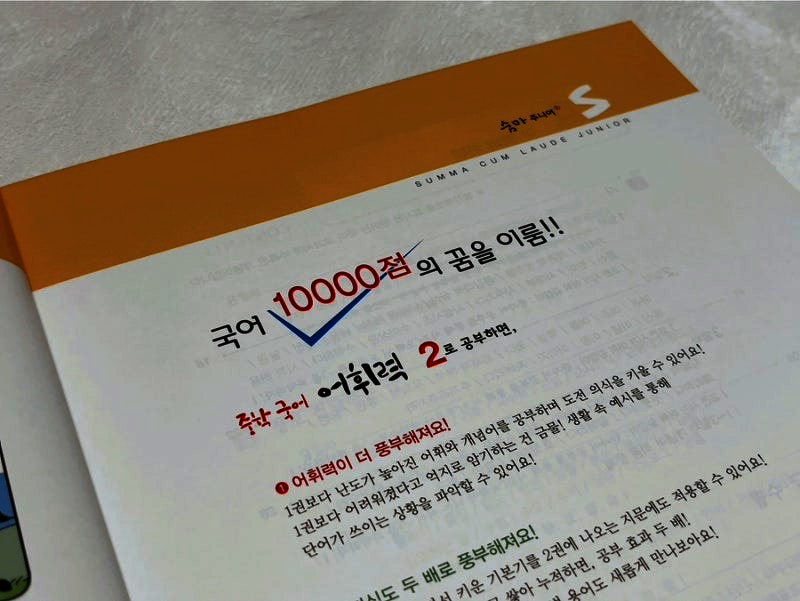 숨마 주니어®
SUMMA CUM LAUDE JUNIOR
국어 10000점의 꿈을 이룸!!
중학 국어 어휘력 2로 공부하면,
❶ 어휘력이 더 풍부해져요!
1권보다 난도가 높아진 어휘와 개념어를 공부하며 도전 의식을 키울 수 있어요!
1권보다 어려워졌다고 억지로 암기하는 건 금물! 생활 속 예시를 통해
단어가 쓰이는 상황을 파악할 수 있어요!
도 두 배로 풍부해져요!
키운 기본기를 2권에 나오는 지문에도 적용할 수 있어요!
쌓아 누적하면, 공부 효과 두 배!
용어도 새롭게 만나보아요!